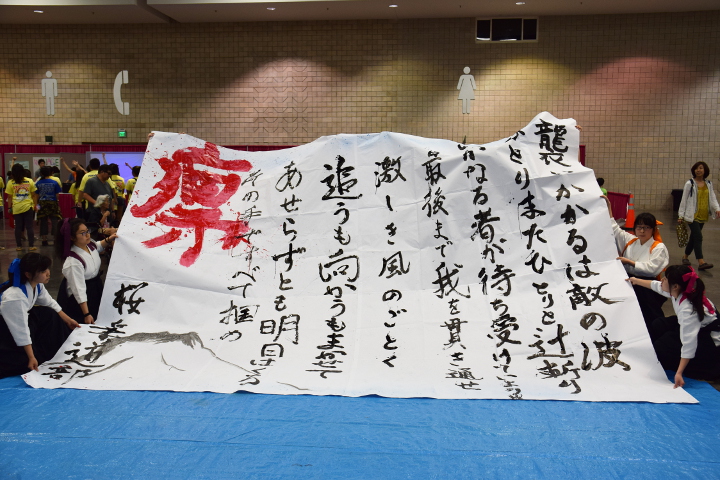 襲いかかるは敵の波
ひとりまたひとりと辻斬り
いかなる者が待ち受けてい
最後まで我を貫き通せ
激しき風のごとく
追うも向かうもまかせて
あせらずとも明日は
その手ですべて掴め
凛
桜